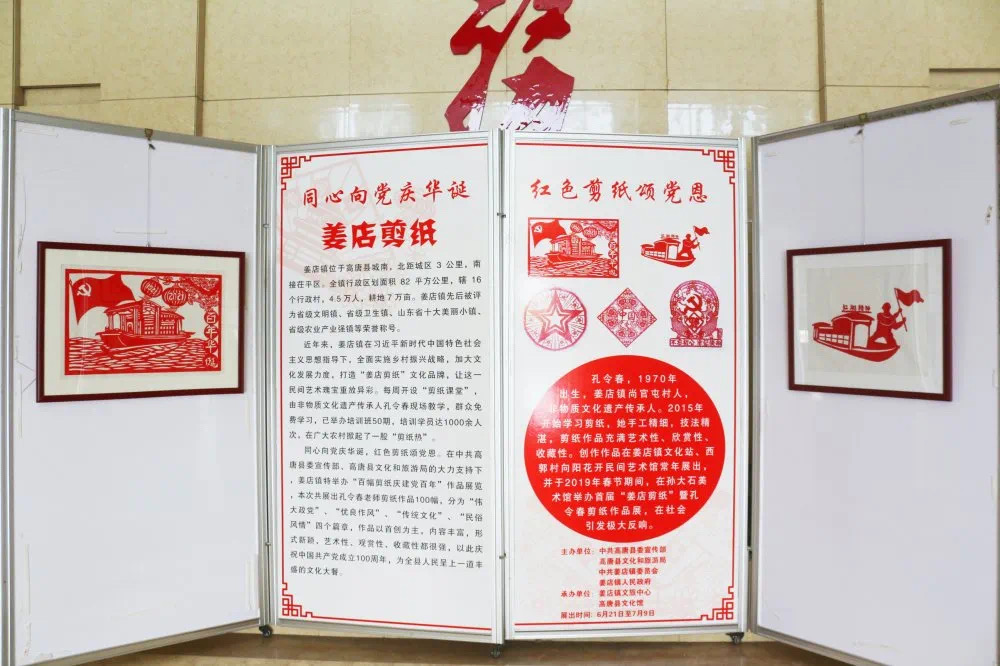 同心向党庆华诞
姜店剪纸
姜店镇位于高唐县城南，北距城区 3 公里，南
接在平区。全镇行政区划面积 82 平方公里，辖 16
个行政村，4.5 万人，耕地 7 万亩。姜店镇先后被评
为省级文明镇、省级卫生镇、山东省十大美丽小镇、
省级农业产业强镇等荣誉称号。
近年来，姜店镇在习近平新时代中国特色社会
主义思想指导下，全面实施乡村振兴战略，加大文
化发展力度，打造“姜店剪纸”文化品牌，让这一
民间艺术瑰宝重放异彩。每周开设“剪纸课堂”，
由非物质文化遗产传承人孔令春现场教学，群众免
费学习，已举办培训班50期，培训学员达1000余人
次，在广大农村掀起了一股“剪纸热”。
同心向党庆华诞，红色剪纸颂党恩。在中共高
唐县委宣传部、高唐县文化和旅游局的大力支持下
，姜店镇特举办“百幅剪纸庆建党百年”作品展览
，本次共展出孔令春老师剪纸作品100幅，分为“伟
大政党”、“优良作风”、“传统文化”、“民俗
风情”四个篇章，作品以首创为主，内容丰富，形
式新颖，艺术性、观赏性、收藏性都很强，以此庆
祝中国共产党成立100周年，为全县人民呈上一道丰
盛的文化大餐。
红色剪纸颂党恩
中国
孔令春，1970年
出生，姜店镇尚官屯村人，
非物质文化遗产传承人。2015年
开始学习剪纸，她手工精细，技法精
湛，剪纸作品充满艺术性、欣赏性、
收藏性。创作作品在姜店镇文化站、西
郭村向阳花开民间艺术馆常年展出，
并于2019年春节期间，在孙大石美
术馆举办首届“姜店剪纸”暨孔
令春剪纸作品展，在社会
引发极大反响。
主办单位：中共高唐县委宣传部
高唐县文化和旅游局
中共姜店镇委员会
姜店镇人民政府
承办单位：姜店镇文旅中心
高唐县文化馆
展出时间：6月21日至7月9日
1921
2021
百年华诞